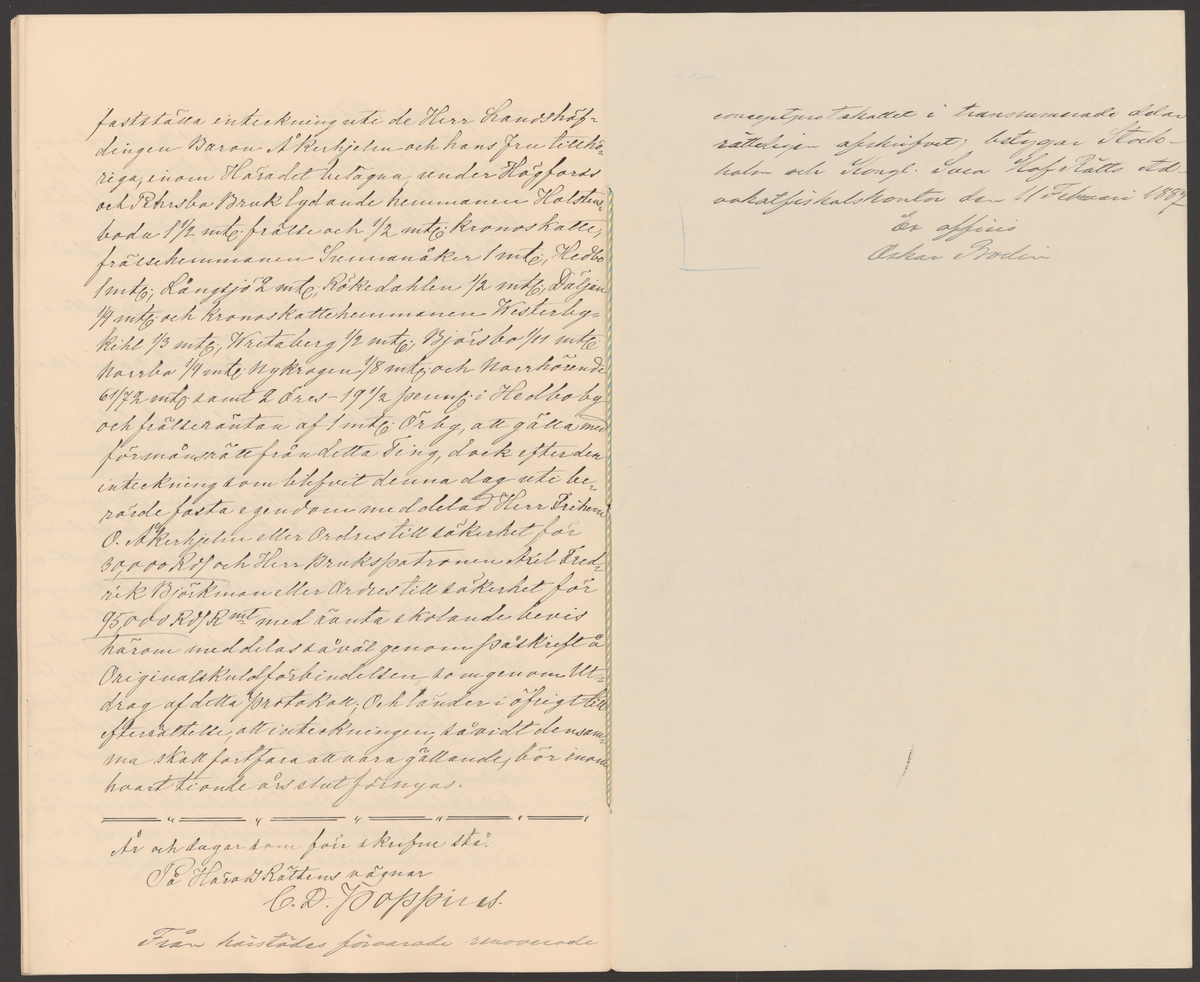 fastställa inteckning uti de Herr Landshöf-
dingen Baron Åkerhjelm och hans Fru tillhö-
riga, inom Häradet belägna, under Högforss
och Rhrsbo Bruk lydande hemmanen Holstens-
boda 1 1/2 mtl; frälse och 1/2 mtl; kronoskatte,
frälsehemmanen Sunnanåker 1 mtl; Hedbo
1 mtl; Långsjö 2 mtl; Rökedahlen 1/2 mtl; Däljan
1/4 mtl; och kronoskattehemmanen Westerby-
kihl 1/3 mtl; Wretaberg 1/2 mtl; Bjórsbo mtl;
Norrbo 1/4 mtl; Nykrogen 1/8 mtl; och Norrhörende
61/72 mtl; samt 2 öres - 19 1/2 penn; i Hedbo by
och frälseräntan af 1 mtl; Örby, att gälla med
förmånsrätt från detta Ting, dock efter den
inteckning som blifvit denna dag uti be-
rörde fasta egendom meddelad Herr Friherre
O. Åkerhjelm eller Ordres till säkerhet för
30,000 Rdr och Herr Brukspatronen Axel Fred-
rik Björkman eller Ordres till säkerhet för
95000 Rdr Rmt med ränta skolande bevis
härom meddelas såväl genom påskrift å
Originalskuldförbindelsen, som genom Ut-
drag af detta Protokoll; Och länder i öfrigt till
efterrättelse, att inteckningen, såvidt densam-
ma skall fortfara att vara gällande, bör inom
hvart tionde års slut förnyas.
År och dagar som förr skrifne stå.
På HäradsRättens vägnar
C. D. Poppius.
Från härstädes förvarade renoverade
conceptprotokollet i transumerade delar
rätteligen afskrifvet; betygar Stock-
holm och Kongl. Svea Hof Rätts Ad-
vokatfiskalskontor den 11 Februari 1887
Ex officio
Oskar Bodin